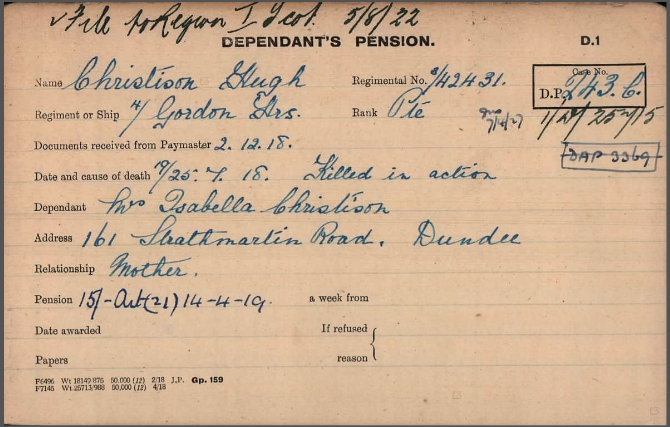 File to Region I Scot. 5/8/22
DEPENDANT'S PENSION. D.1
Name Christison Hugh Regimental No. S/42431. Case No. D.P. 243.C.
Regiment or Ship 4/ Gordon Hrs. Rank Pte
Documents received from Paymaster 2.12.18. DAP 3369
Date and cause of death 19/25.7.18. Killed in action
Dependant Mrs Isabella Christison
Address 161 Strathmartin Road. Dundee
Relationship Mother.
Pension 15/- Art (21) 14-4-19. a week from
Date awarded If refused
Papers reason
F6496 Wt 18149/875 50,000 (12) 2/18 J.P. Gp. 159
F7145 Wt 25713/988 50,000 (12) 4/18